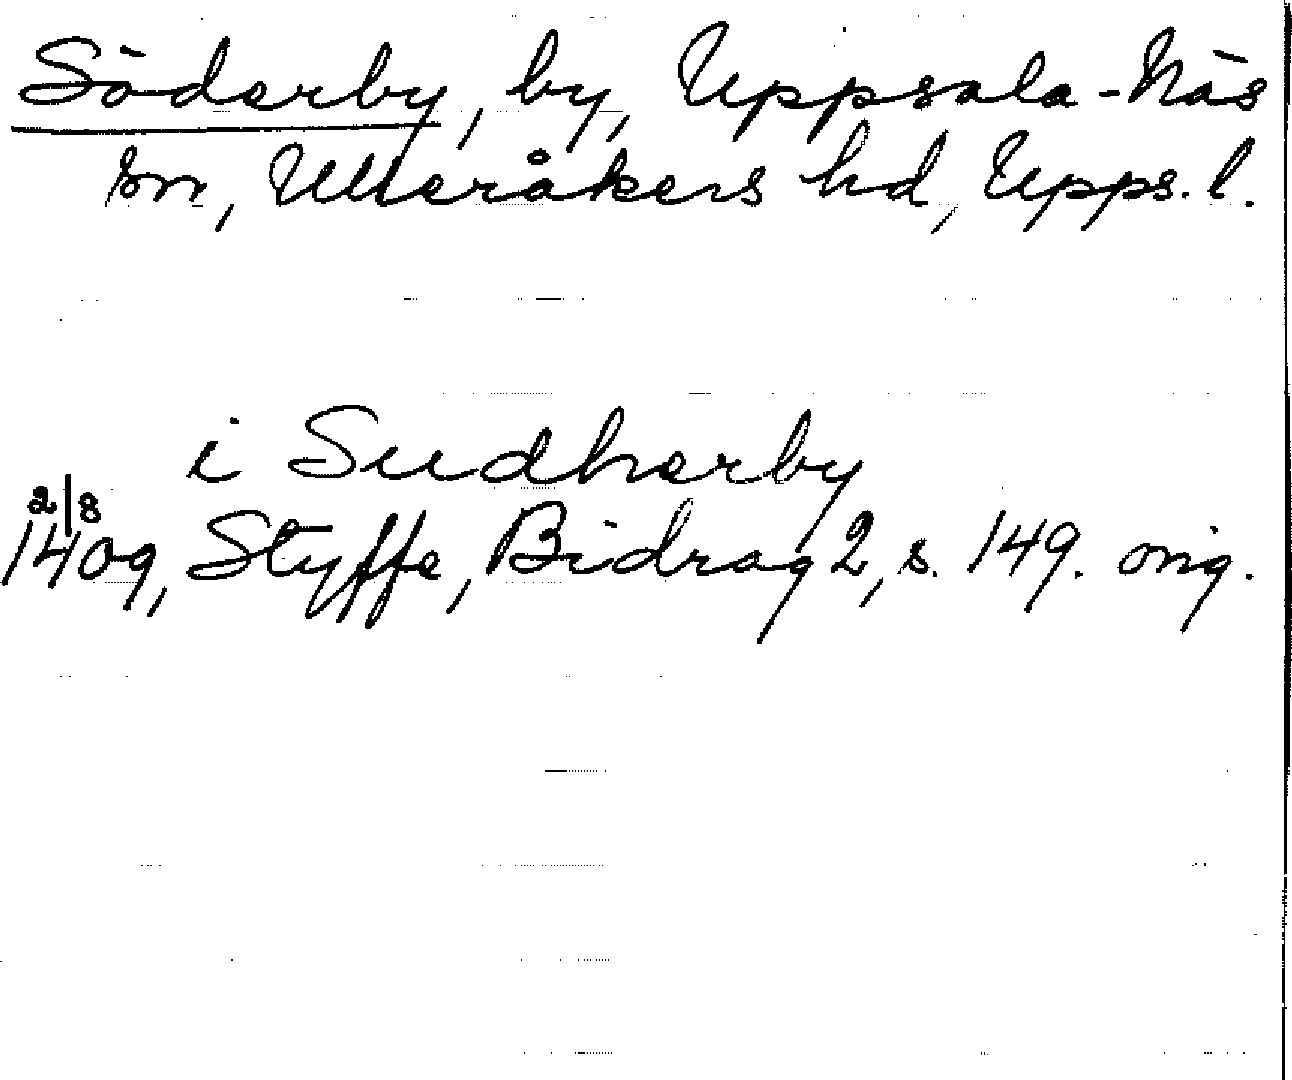 Söderby, by, Uppsala-Näs
sn, Ulleråkers hd, Upps. l.
i Sudherby
2/8
1409, Styffe, Bidrag 2, s. 149. orig.